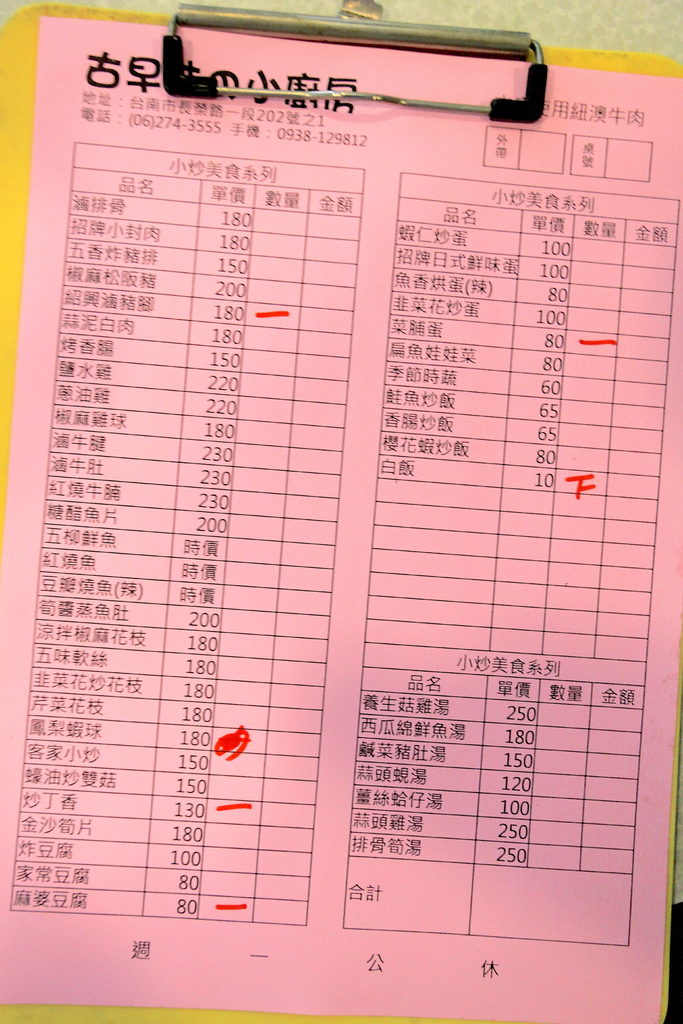 古早味の小廚房
地址：台南市長榮路一段202號之1
電話：(06)274-3555 手機：0938-129812
使用紐澳牛肉
外帶
桌號
小炒美食系列
品名 單價 數量 金額
滷排骨 180
招牌小封肉 180
五香炸豬排 150
椒麻松阪豬 200
紹興滷豬腳 180 一
蒜泥白肉 180
烤香腸 150
鹽水雞 220
蔥油雞 220
椒麻雞球 180
滷牛腱 230
滷牛肚 230
紅燒牛腩 230
糖醋魚片 200
五柳鮮魚 時價
紅燒魚 時價
豆瓣燒魚(辣) 時價
筍醬蒸魚肚 200
涼拌椒麻花枝 180
五味軟絲 180
韭菜花炒花枝 180
芹菜花枝 180
鳳梨蝦球 180
客家小炒 150
蠔油炒雙菇 150
炒丁香 130 一
金沙筍片 180
炸豆腐 100
家常豆腐 80
麻婆豆腐 80 一
小炒美食系列
品名 單價 數量 金額
蝦仁炒蛋 100
招牌日式鮮味蛋 100
魚香烘蛋(辣) 80
韭菜花炒蛋 100
菜脯蛋 80 一
扁魚娃娃菜 80
季節時蔬 60
鮭魚炒飯 65
香腸炒飯 65
櫻花蝦炒飯 80
白飯 10 下
小炒美食系列
品名 單價 數量 金額
養生菇雞湯 250
西瓜綿鮮魚湯 180
鹹菜豬肚湯 150
蒜頭蜆湯 120
薑絲蛤仔湯 100
蒜頭雞湯 250
排骨筍湯 250
合計
週一公休